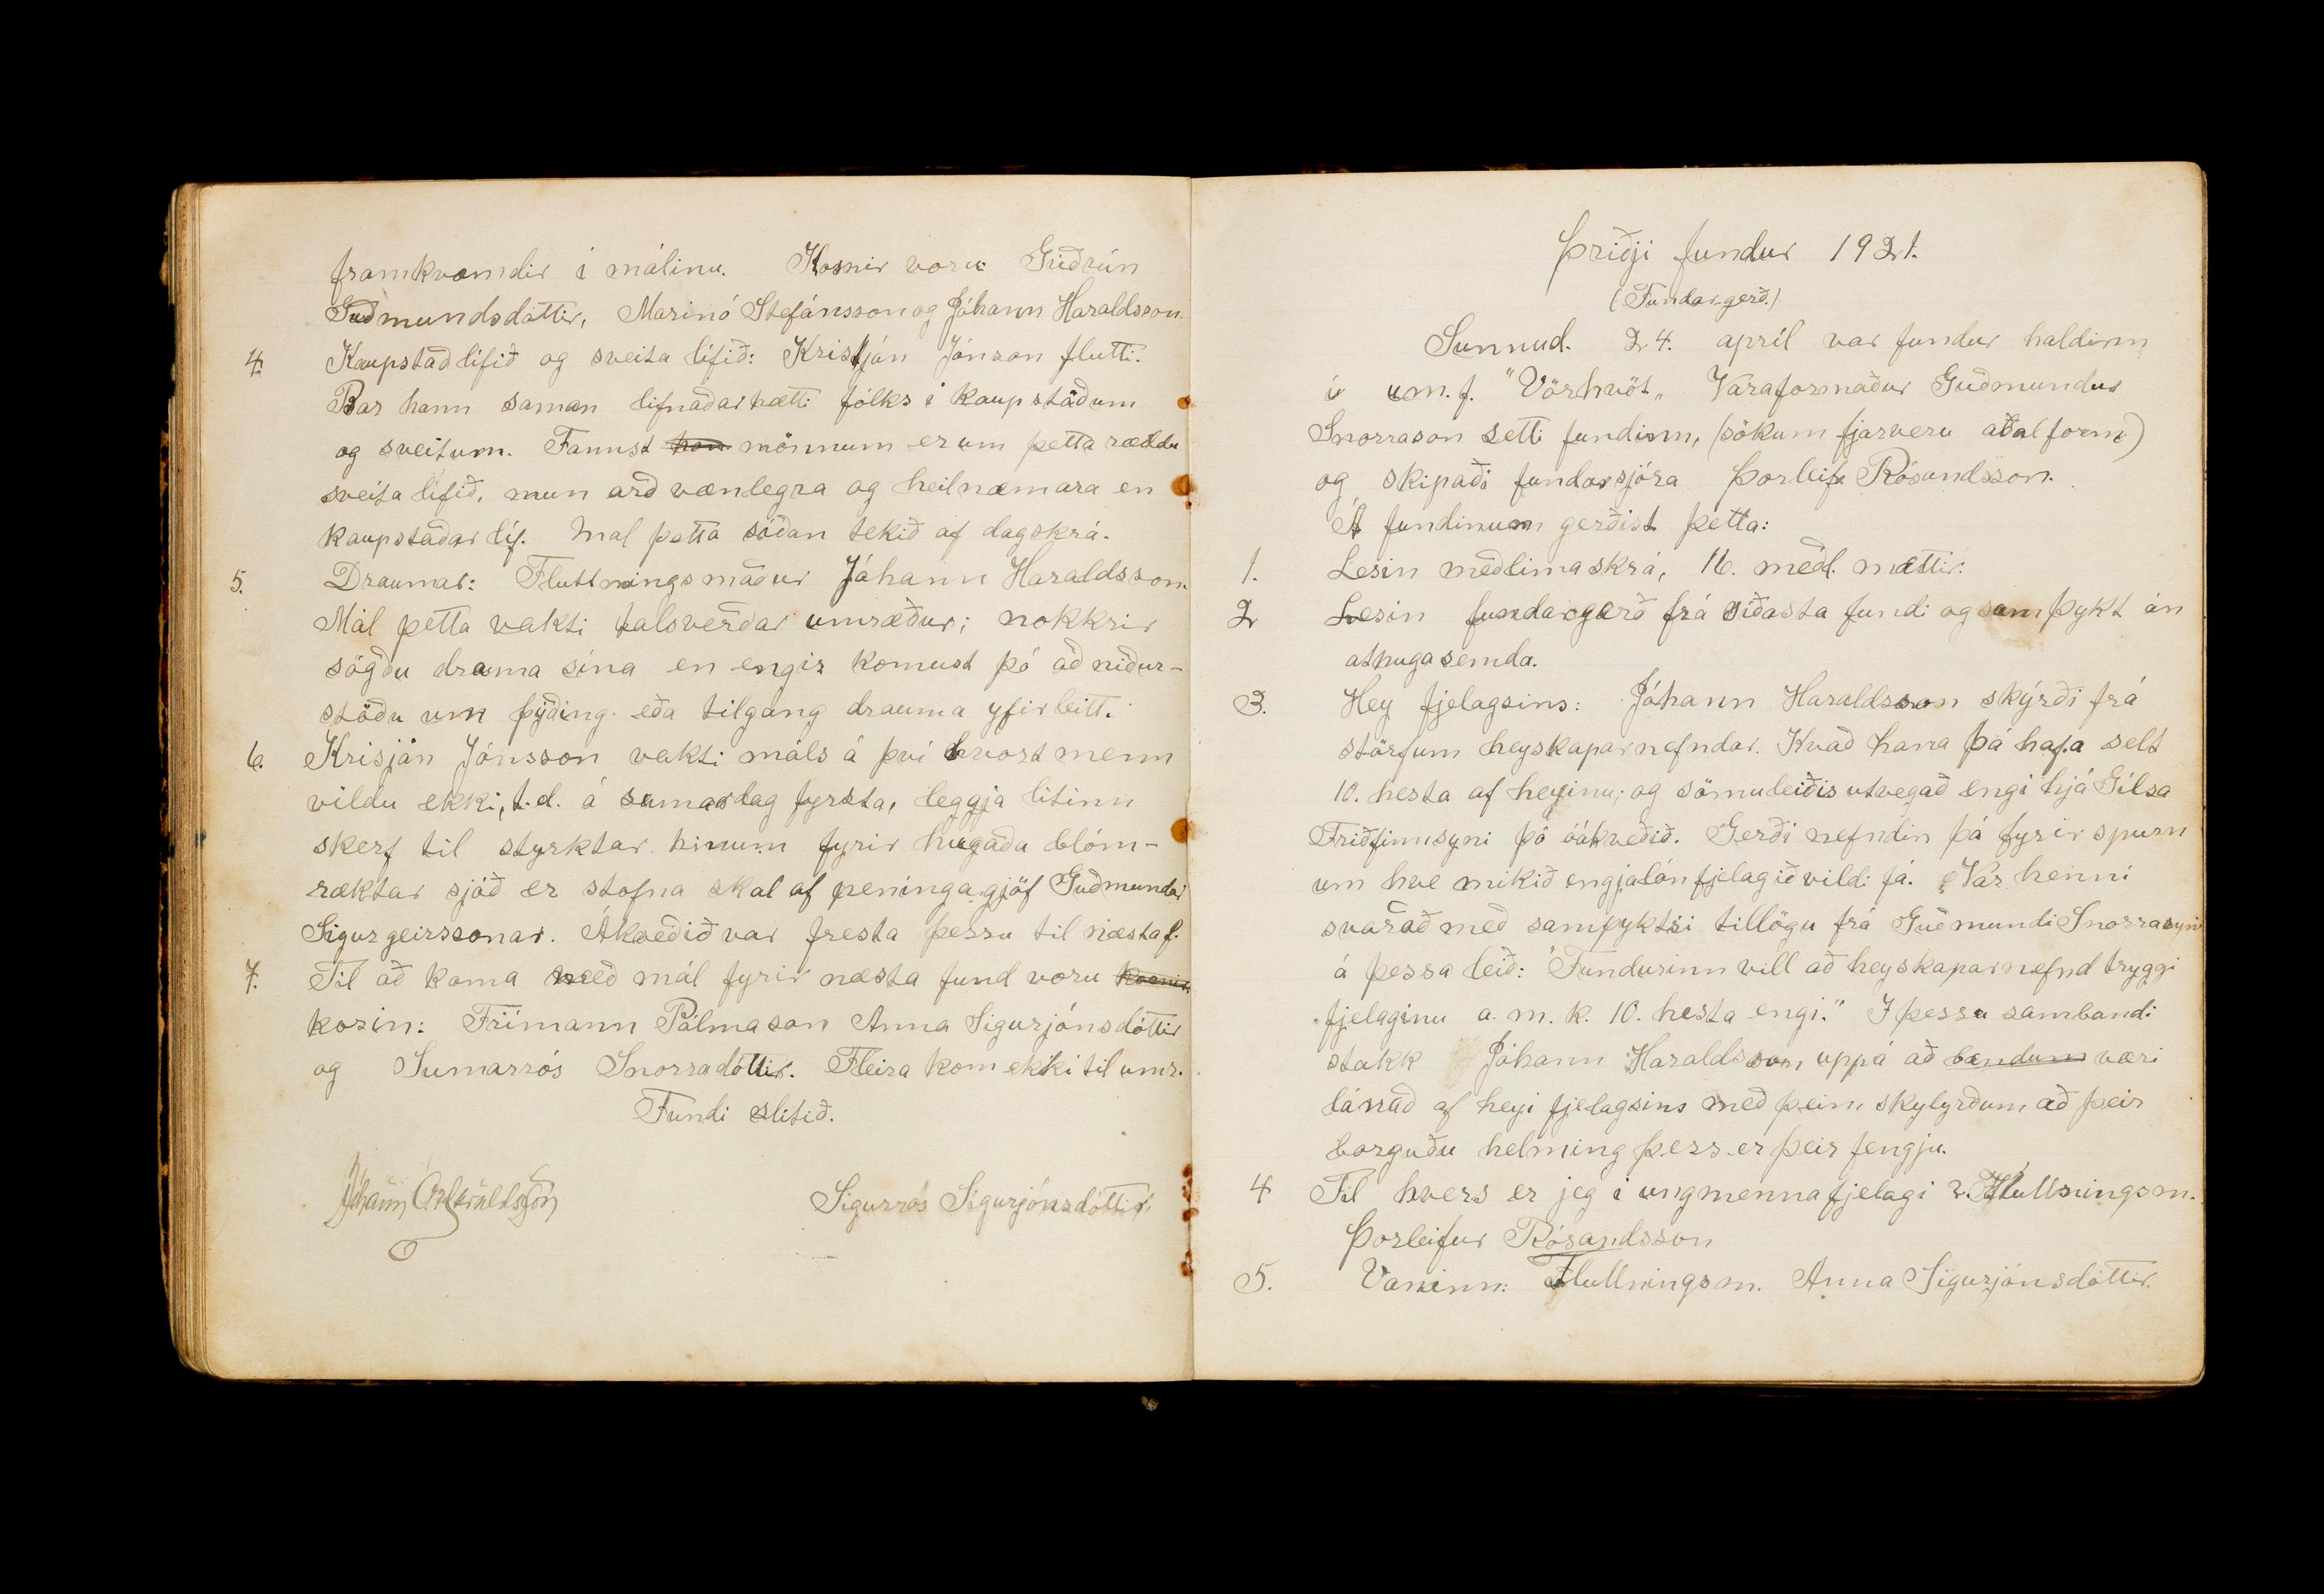 framkvæmdir í málinu. Kosnir voru Guðrún
Guðmundsdóttir, Marinó Stefánsson og Jóhann Haraldsson.
4. Kaupstaðlífið og sveita lífið: Kristján Jónson flutti.
Bar hann saman lifnaðarhætti fólks í kaupstöðum
og sveitum. Fannst hon mönnum er um þetta ræddu
sveita lífið, mun arð vænlegra og heilnæmara en
kaupstaðar líf. Mal þetta síðan tekið af dagskrá.
5. Draumar: Fluttningsmaður Jóhann Haraldsson
Mál þetta vakti talsverðar umræður; nokkrir
sögðu drauma sína en engir komust þó að niður-
stöðu um þýðing eða tilgang drauma yfirleitt.
6. Krisján Jónsson vakti máls á því hvort menn
vildu ekki, t.d. á sumardag fyrsta, leggja litinn
skerf til styrktar hinum fyrir hugaða blóm-
ræktar sjóð er stofna skal af peninga gjöf Guðmundar
Sigurgeirssonar. Ákveðið var fresta þessu til næsta f.
7. Til að koma með mál fyrir næsta fund voru kosnir
kosin: Frímann Pálmason Anna Sigurjónsdóttir
og Sumarrós Snorradóttir. Fleira kom ekki til umr.
Fundi slitið.
Jóhann Ól Haraldsson
Sigurrós Sigurjónsdóttir.
Þriðji fundur 1921.
(Fundargerð.)
Sunnud. 24. apríl var fundur haldinn
í um.f. "Vörhvöt„ Varaformaður Guðmundur
Snorrason setti fundinn, (sökum fjarveru aðalform)
og skipaði fundarsjóra Þorleif Rósandsson.
Á fundinum gerðist þetta:
1. Lesin meðlimaskrá, 16. meðl. mættir.
2 Lesin fundargerð frá síðasta fundi og samþykt án
athugasemda.
3. Hey fjelagsins: Jóhann Haraldsson skýrði frá
störfum heyskaparnefndar. Kvað hana þá hafa selt
10. hesta af heyinu; og sömuleiðis utvegað engi hjá Gilsa
Friðfinnsyni þó óákveðið. Gerði nefndin þá fyrir spurn
um hve mikið engjalán fjelagið vildi fá. Var henni
svarað með samþyktri tillögu frá Guðmundi Snorrasyni
á þessa leið: "Fundurinn vill að heyskaparnefnd tryggi
fjelaginu a. m. k. 10. hesta engi." I þessu sambandi
stakk Jóhann Haraldsson uppá að bændum væri
lánað af heyi fjelagsins með þeim skylyrðum að þeir
borguðu helming þess er þeir fengju.
4 Til hvers er jeg i ungmennafjelagi ? Fluttningsm.
Þorleifur Rósandsson
5. Vaninn: Fluttningsm. Anna Sigurjónsdóttir.